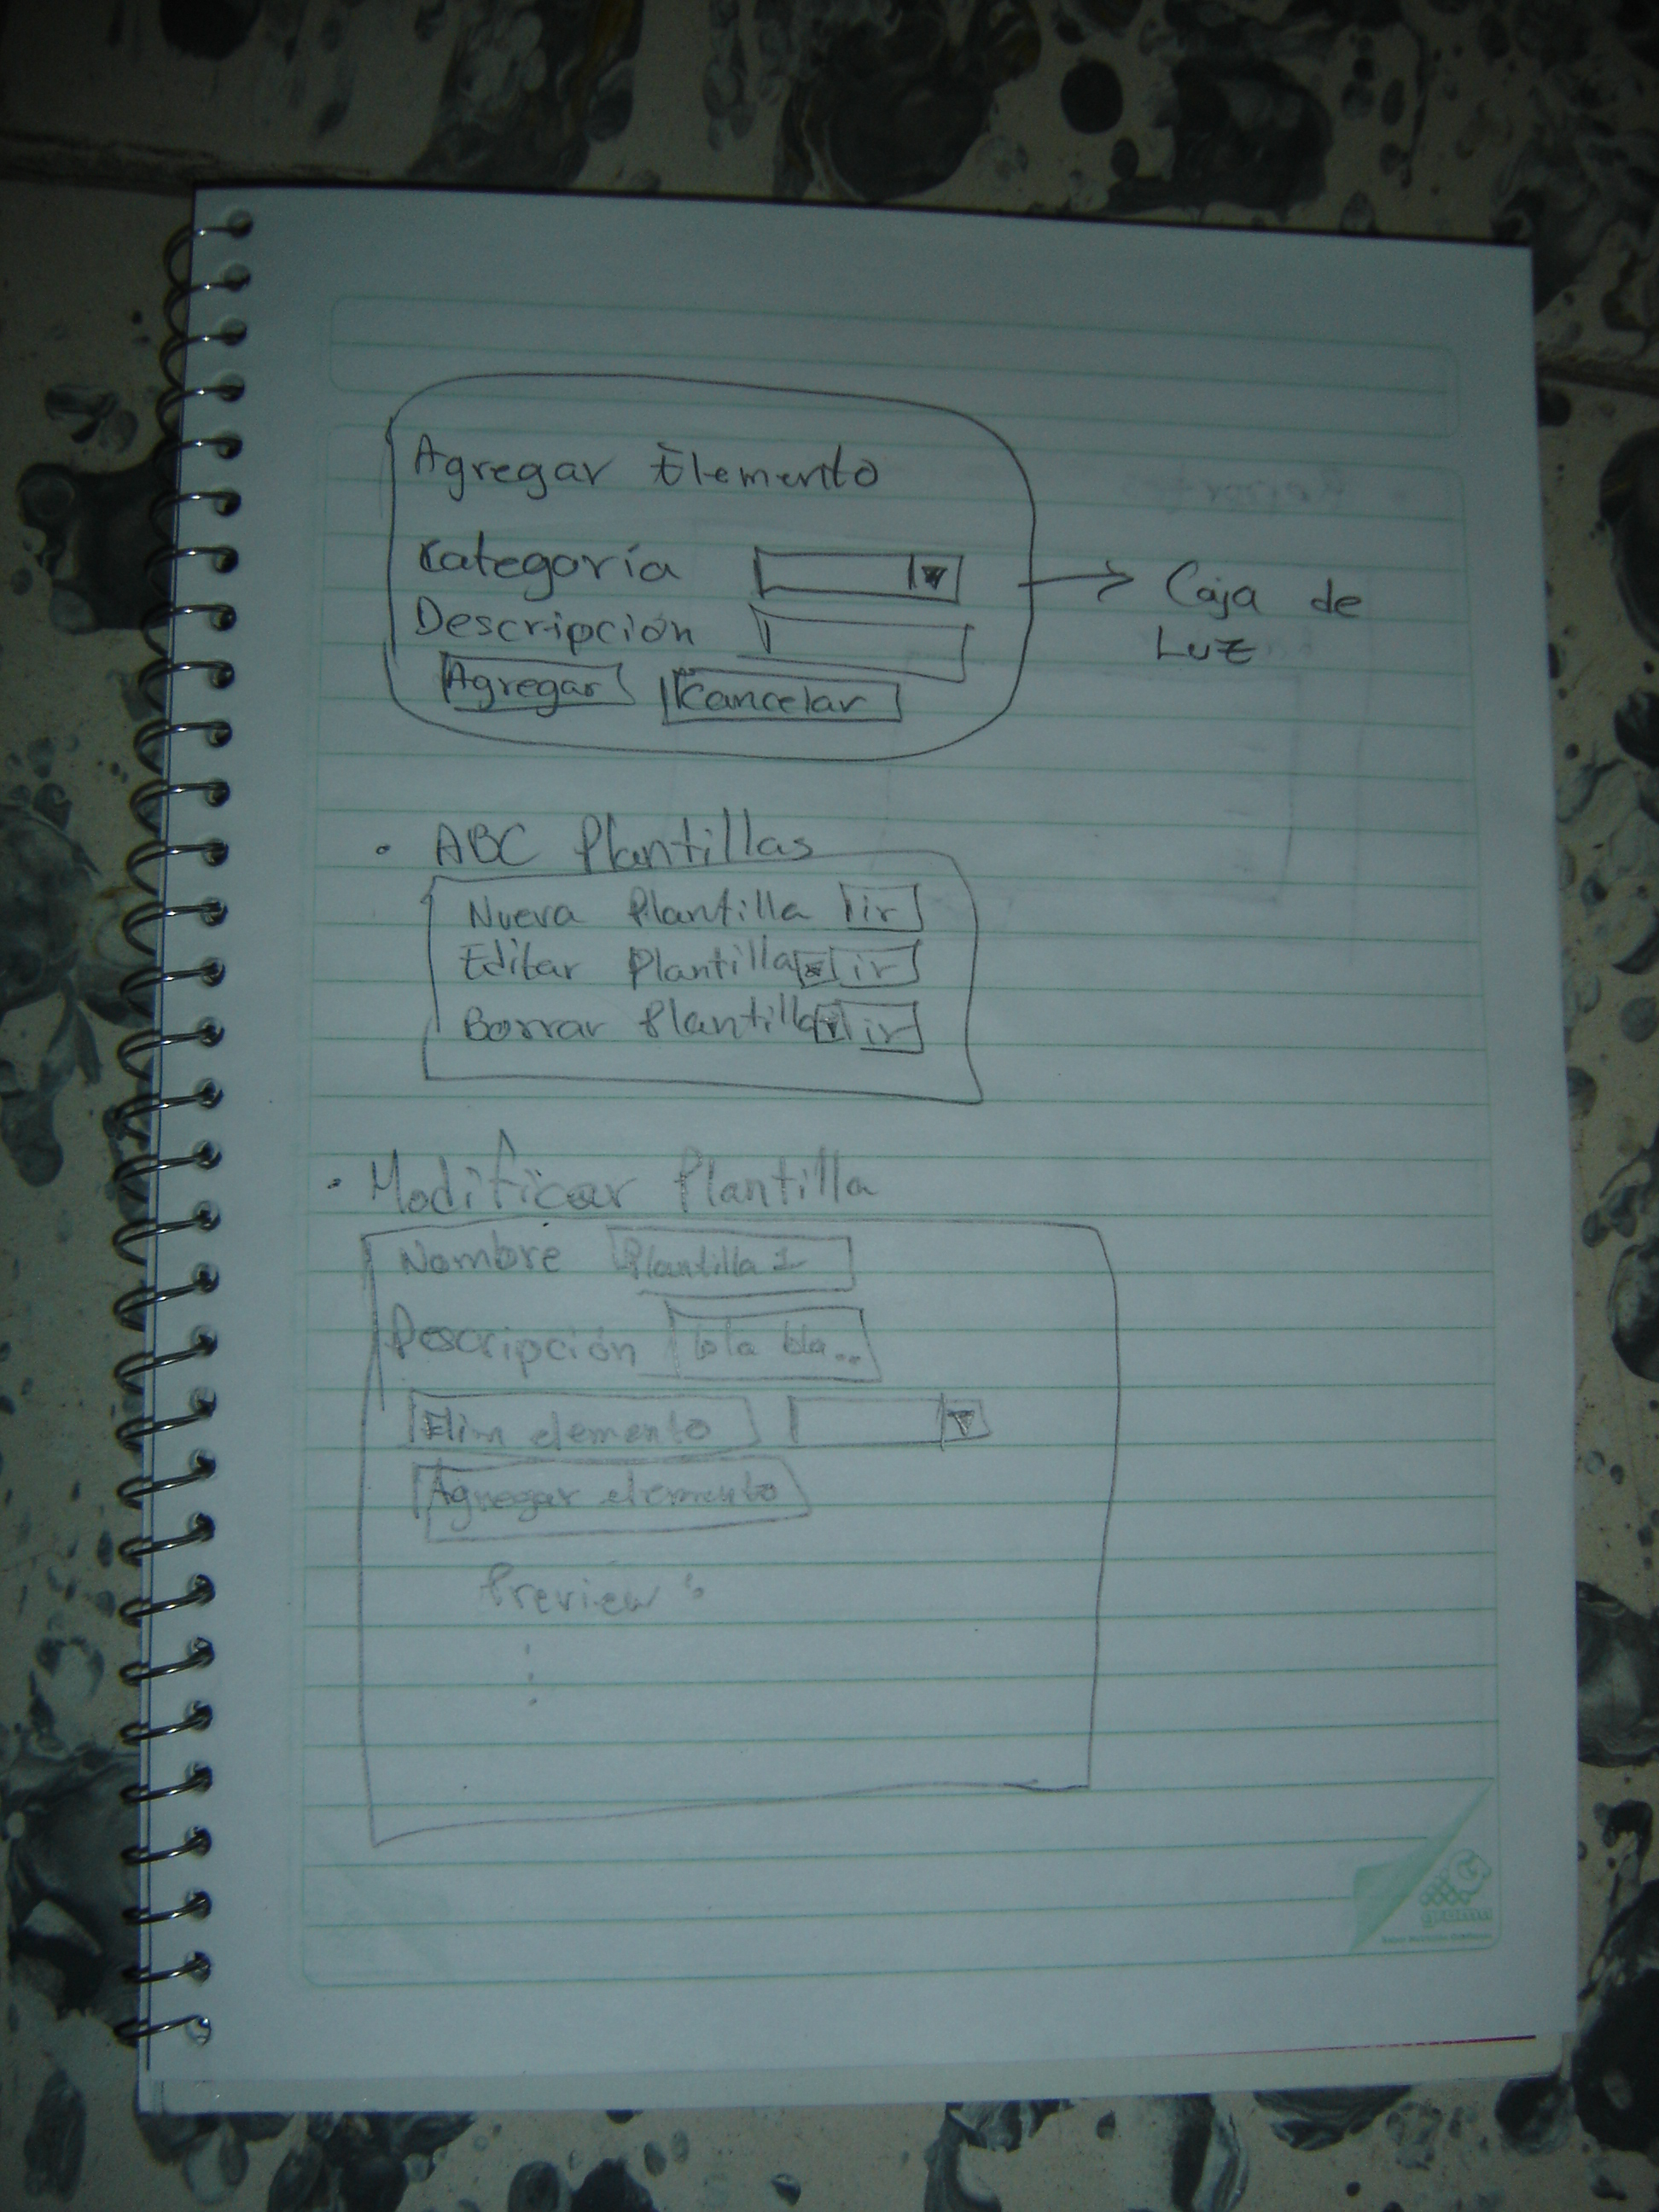 Agregar Elemento
Categoría
Descripción
Agregar Cancelar
Caja de
Luz
• ABC Plantillas
Nueva Plantilla ir
Editar Plantilla ir
Borrar Plantilla ir
• Modificar Plantilla
Nombre Plantilla 1
Descripción bla bla...
Elim elemento
Agregar elemento
Preview: